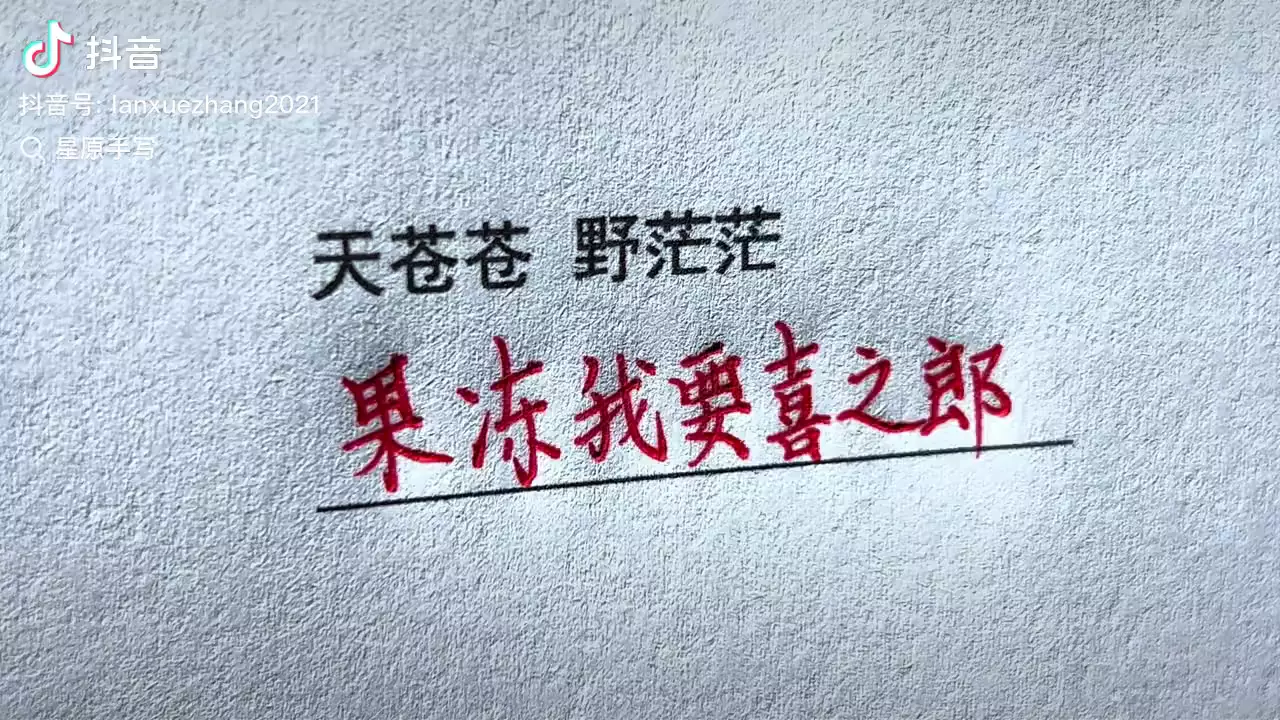 抖音
抖音号: lanxuezhang2021
星原手写
天苍苍 野茫茫
果冻我要喜之郎